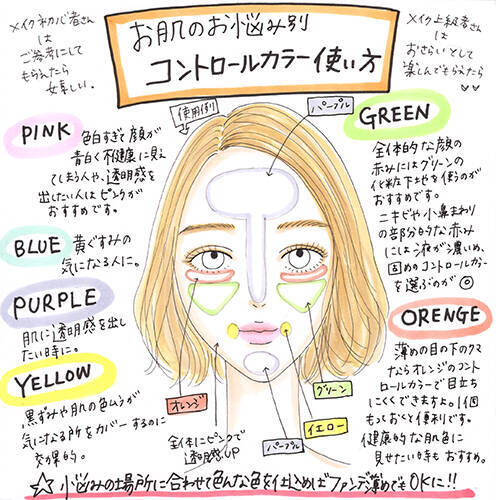 メイク初心者さん
は
ご参考にして
もらえたら
嬉しい。
お肌のお悩み別
コントロールカラー使い方
メイク上級者さん
は
おさらいとして
楽しんでもらえたら
♡♡
使用例
パープル
PINK
色白すぎて顔が
青白く不健康に見え
てしまう人や、透明感を
出したい人はピンクが
おすすめです。
BLUE
黄ぐすみの
気になる人に。
PURPLE
肌に透明感を出し
たい時に。
YELLOW
黒ずみや肌の色ムラが
気になる所をカバーするのに
効果的。
GREEN
全体的な顔の
赤みにはグリーンの
化粧下地を使うのが
おすすめです。
ニキビや小鼻まわり
の部分的な赤み
には液が濃いめ、
固めのコントロールカラー
を選ぶのが◎
ORENGE
薄めの目の下のクマ
ならオレンジのコント
ロールカラーで目立ち
にくくできますよ。1個
もっておくと便利です。
健康的な肌色に
見せたい時もおすすめ。
オレンジ
全体にピンクで
透明感UP
パープル
グリーン
イエロー
☆小悩みの場所に合わせて色んな色を仕込めばファンデ薄めでもOKに!!